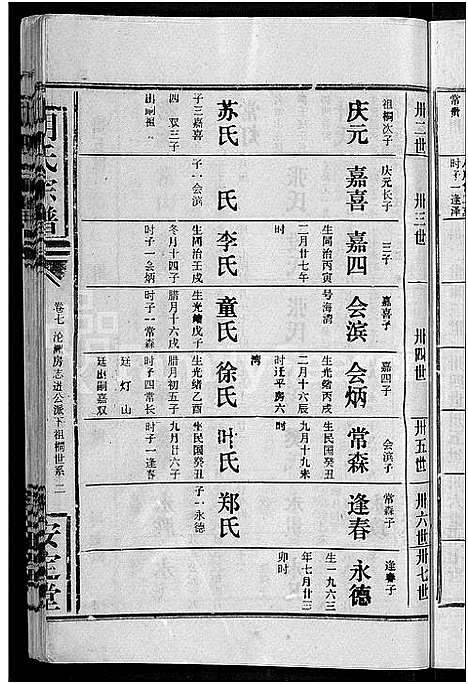 常贵
时子一逢泽
卅二世
卅三世
卅四世
卅五世
卅六世
卅七世
庆元
祖桐次子
苏氏
子三嘉喜
四 双三子
出嗣祖
嘉喜
庆元长子
氏
子一会滨
嘉四
三子
生同治丙寅
二月廿七年
时
李氏
生同治壬戌
冬月十四子
时子一会炳
会滨
嘉喜子
号海湾
童氏
生光绪戊子
腊月十六戌
时子一常森
会炳
嘉四子
生光绪丙戌
二月十六辰
时迁平房六
湾
徐氏
生光绪乙酉
腊月初五子
时子四常长
廷 灯 山
廷出嗣嘉双
常森
会滨子
生民国癸丑
九月十九未
时
叶氏
生民国癸丑
九月廿六子
时子一逢春
逢春
常森子
郑氏
子一永德
永德
逢春子
生一九六三
年七月廿三
卯时
氏宗谱
卷七 沦洲房志进公派下祖桐世系 二
安定堂